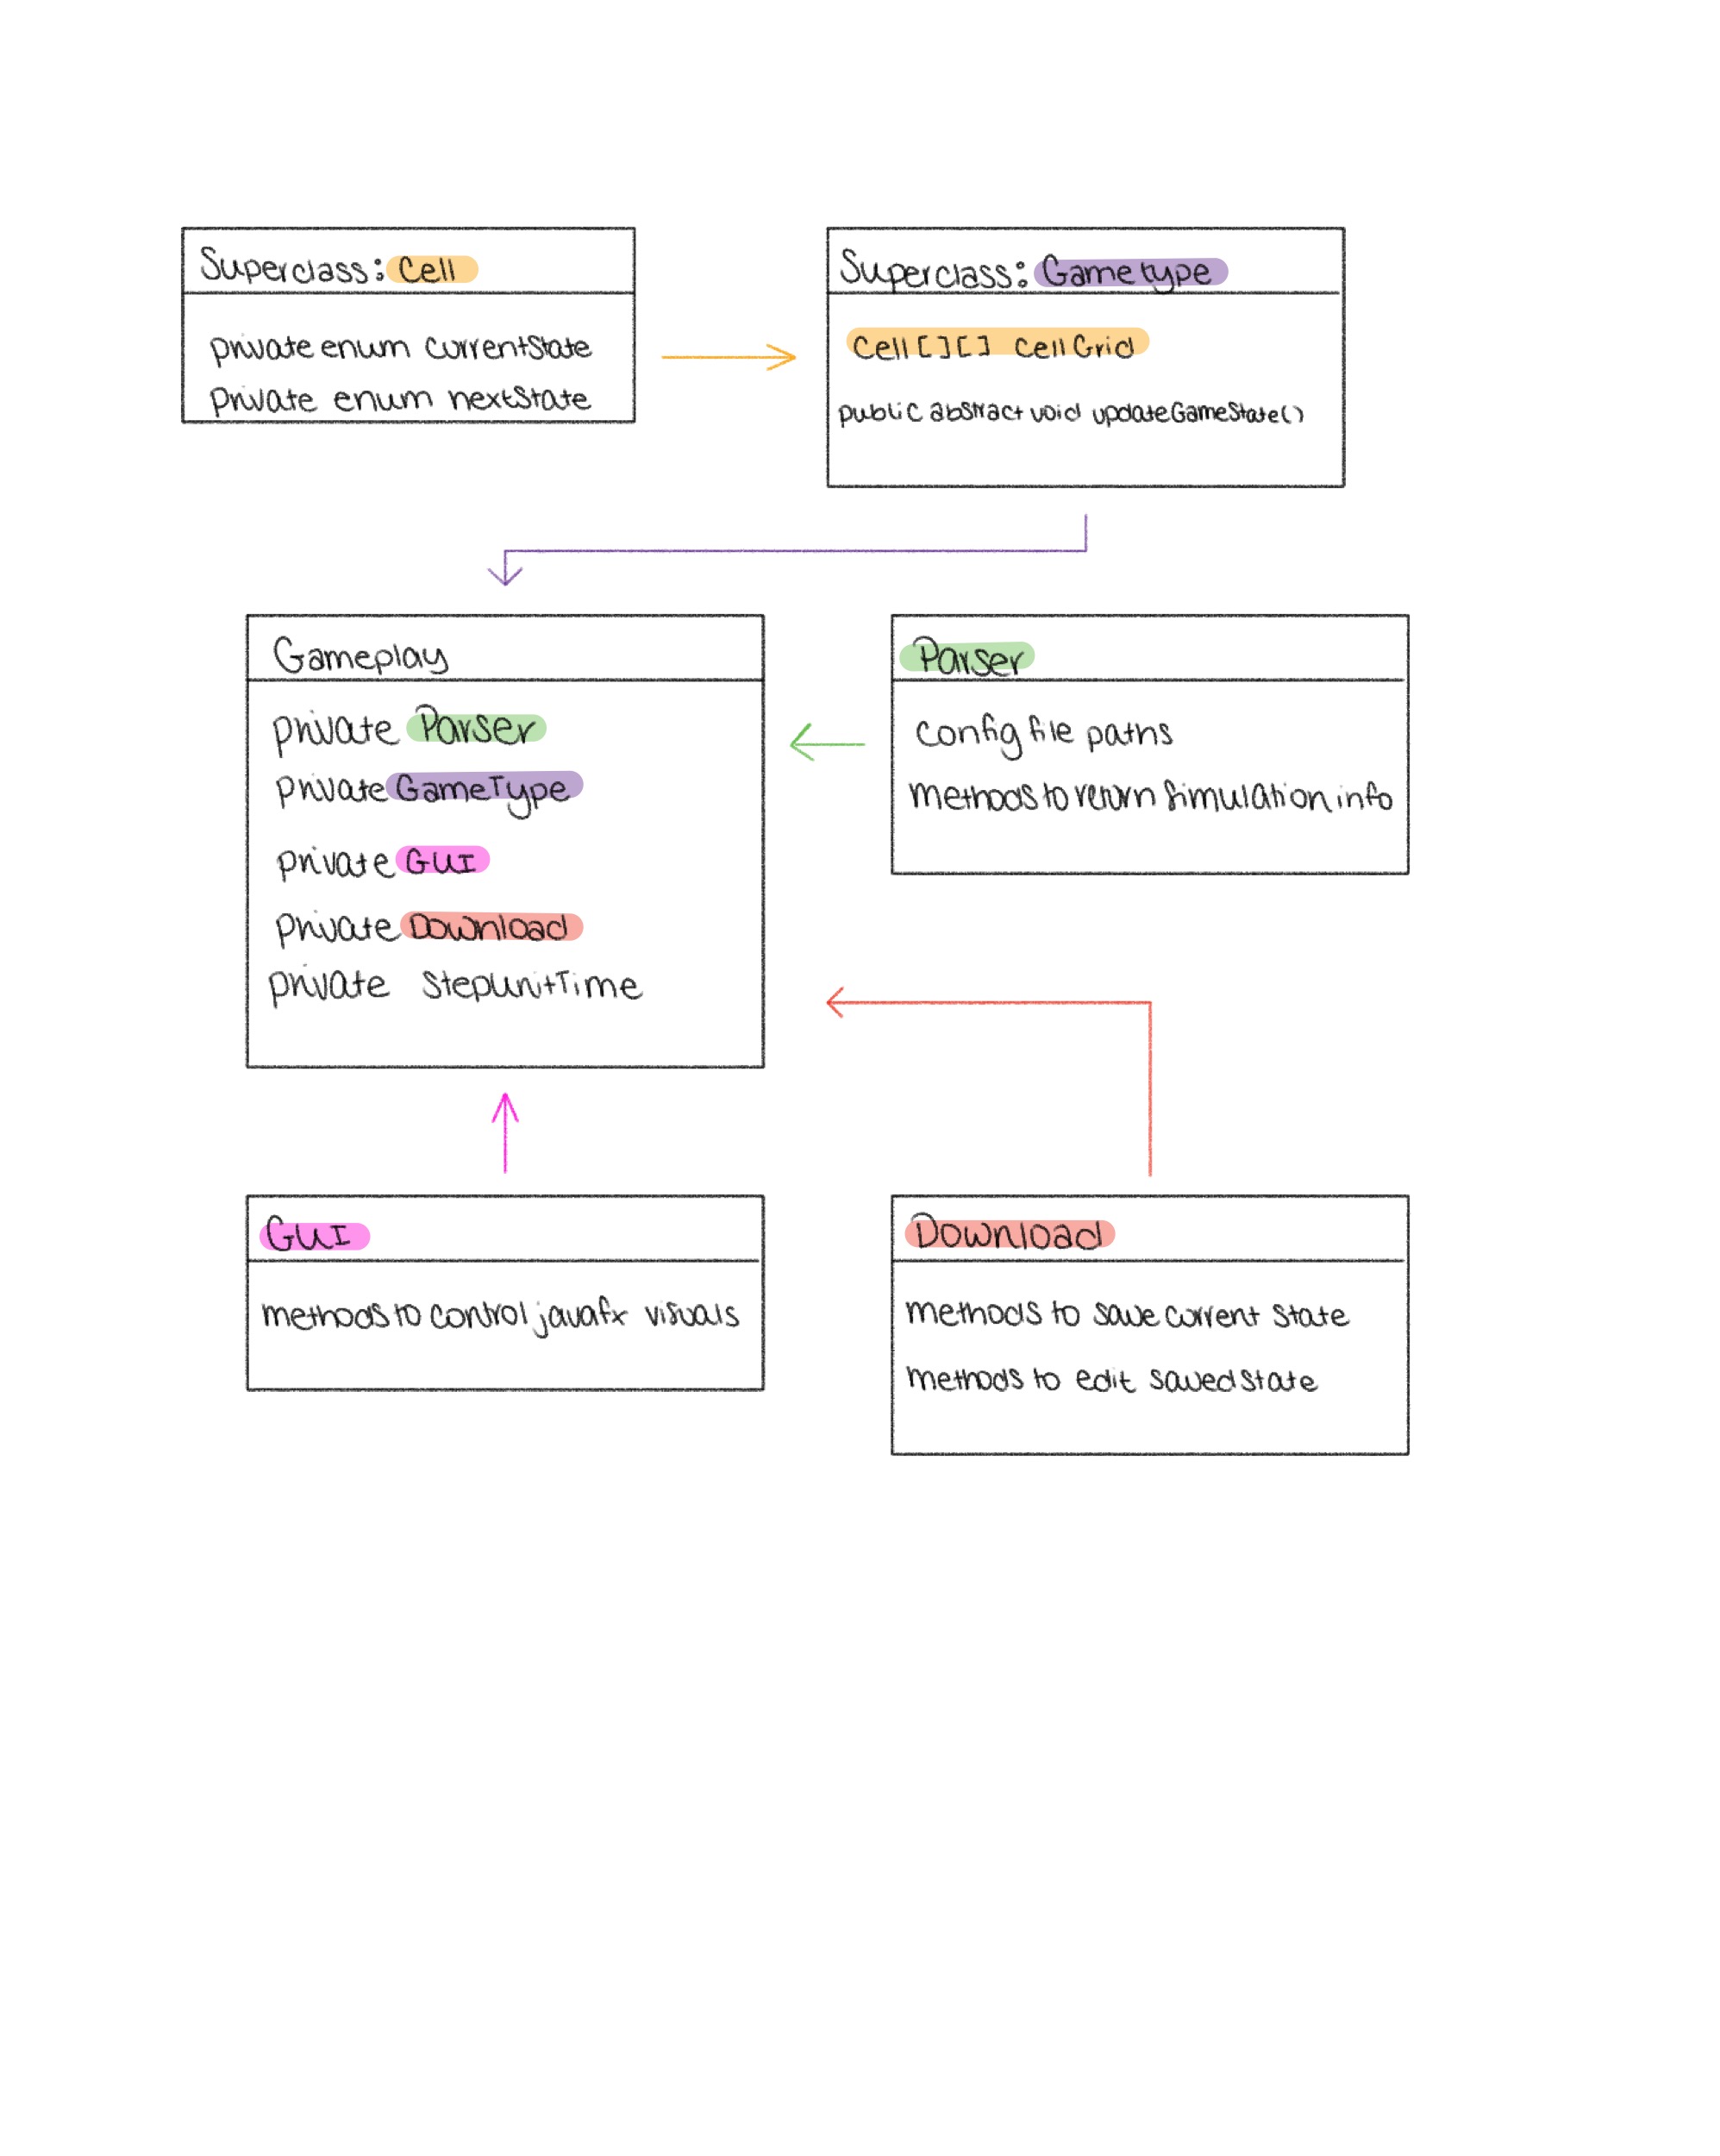 Superclass: Cell
private enum currentState
Private enum nextState
Superclass: Gametype
Cell[][] cellGrid
public abstract void updateGameState()
Gameplay
private Parser
private GameType
private GUI
private Download
private stepUnitTime
Parser
config file paths
methods to return simulation info
GUI
methods to control javafx visuals
Download
methods to save current state
methods to edit saved state